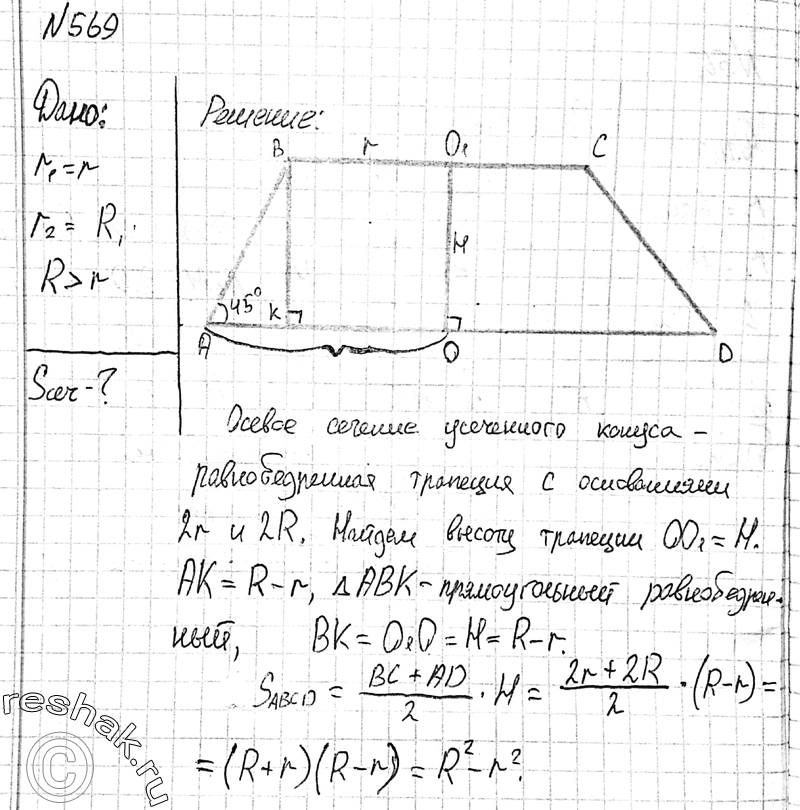 N569
Дано:
r₁ = r
r₂ = R,
R > r
Sсеч - ?
Решение:
B r O₁ C
H
45° K
A O D
Осевое сечение усеченного конуса –
равнобедренная трапеция с основаниями
2r и 2R. Найдем высоту трапеции OO₁ = H.
AK = R – r, △ABK – прямоугольный равнобедрен-
ный, BK = O₁O = H = R – r.
S_ABCD = (BC + AD)/2 · H = (2r + 2R)/2 · (R – r) =
= (R + r)(R – r) = R² – r².
reshak.ru
©